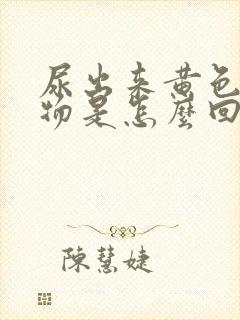 尿出来黄色
物是怎麼回
陳慧婕